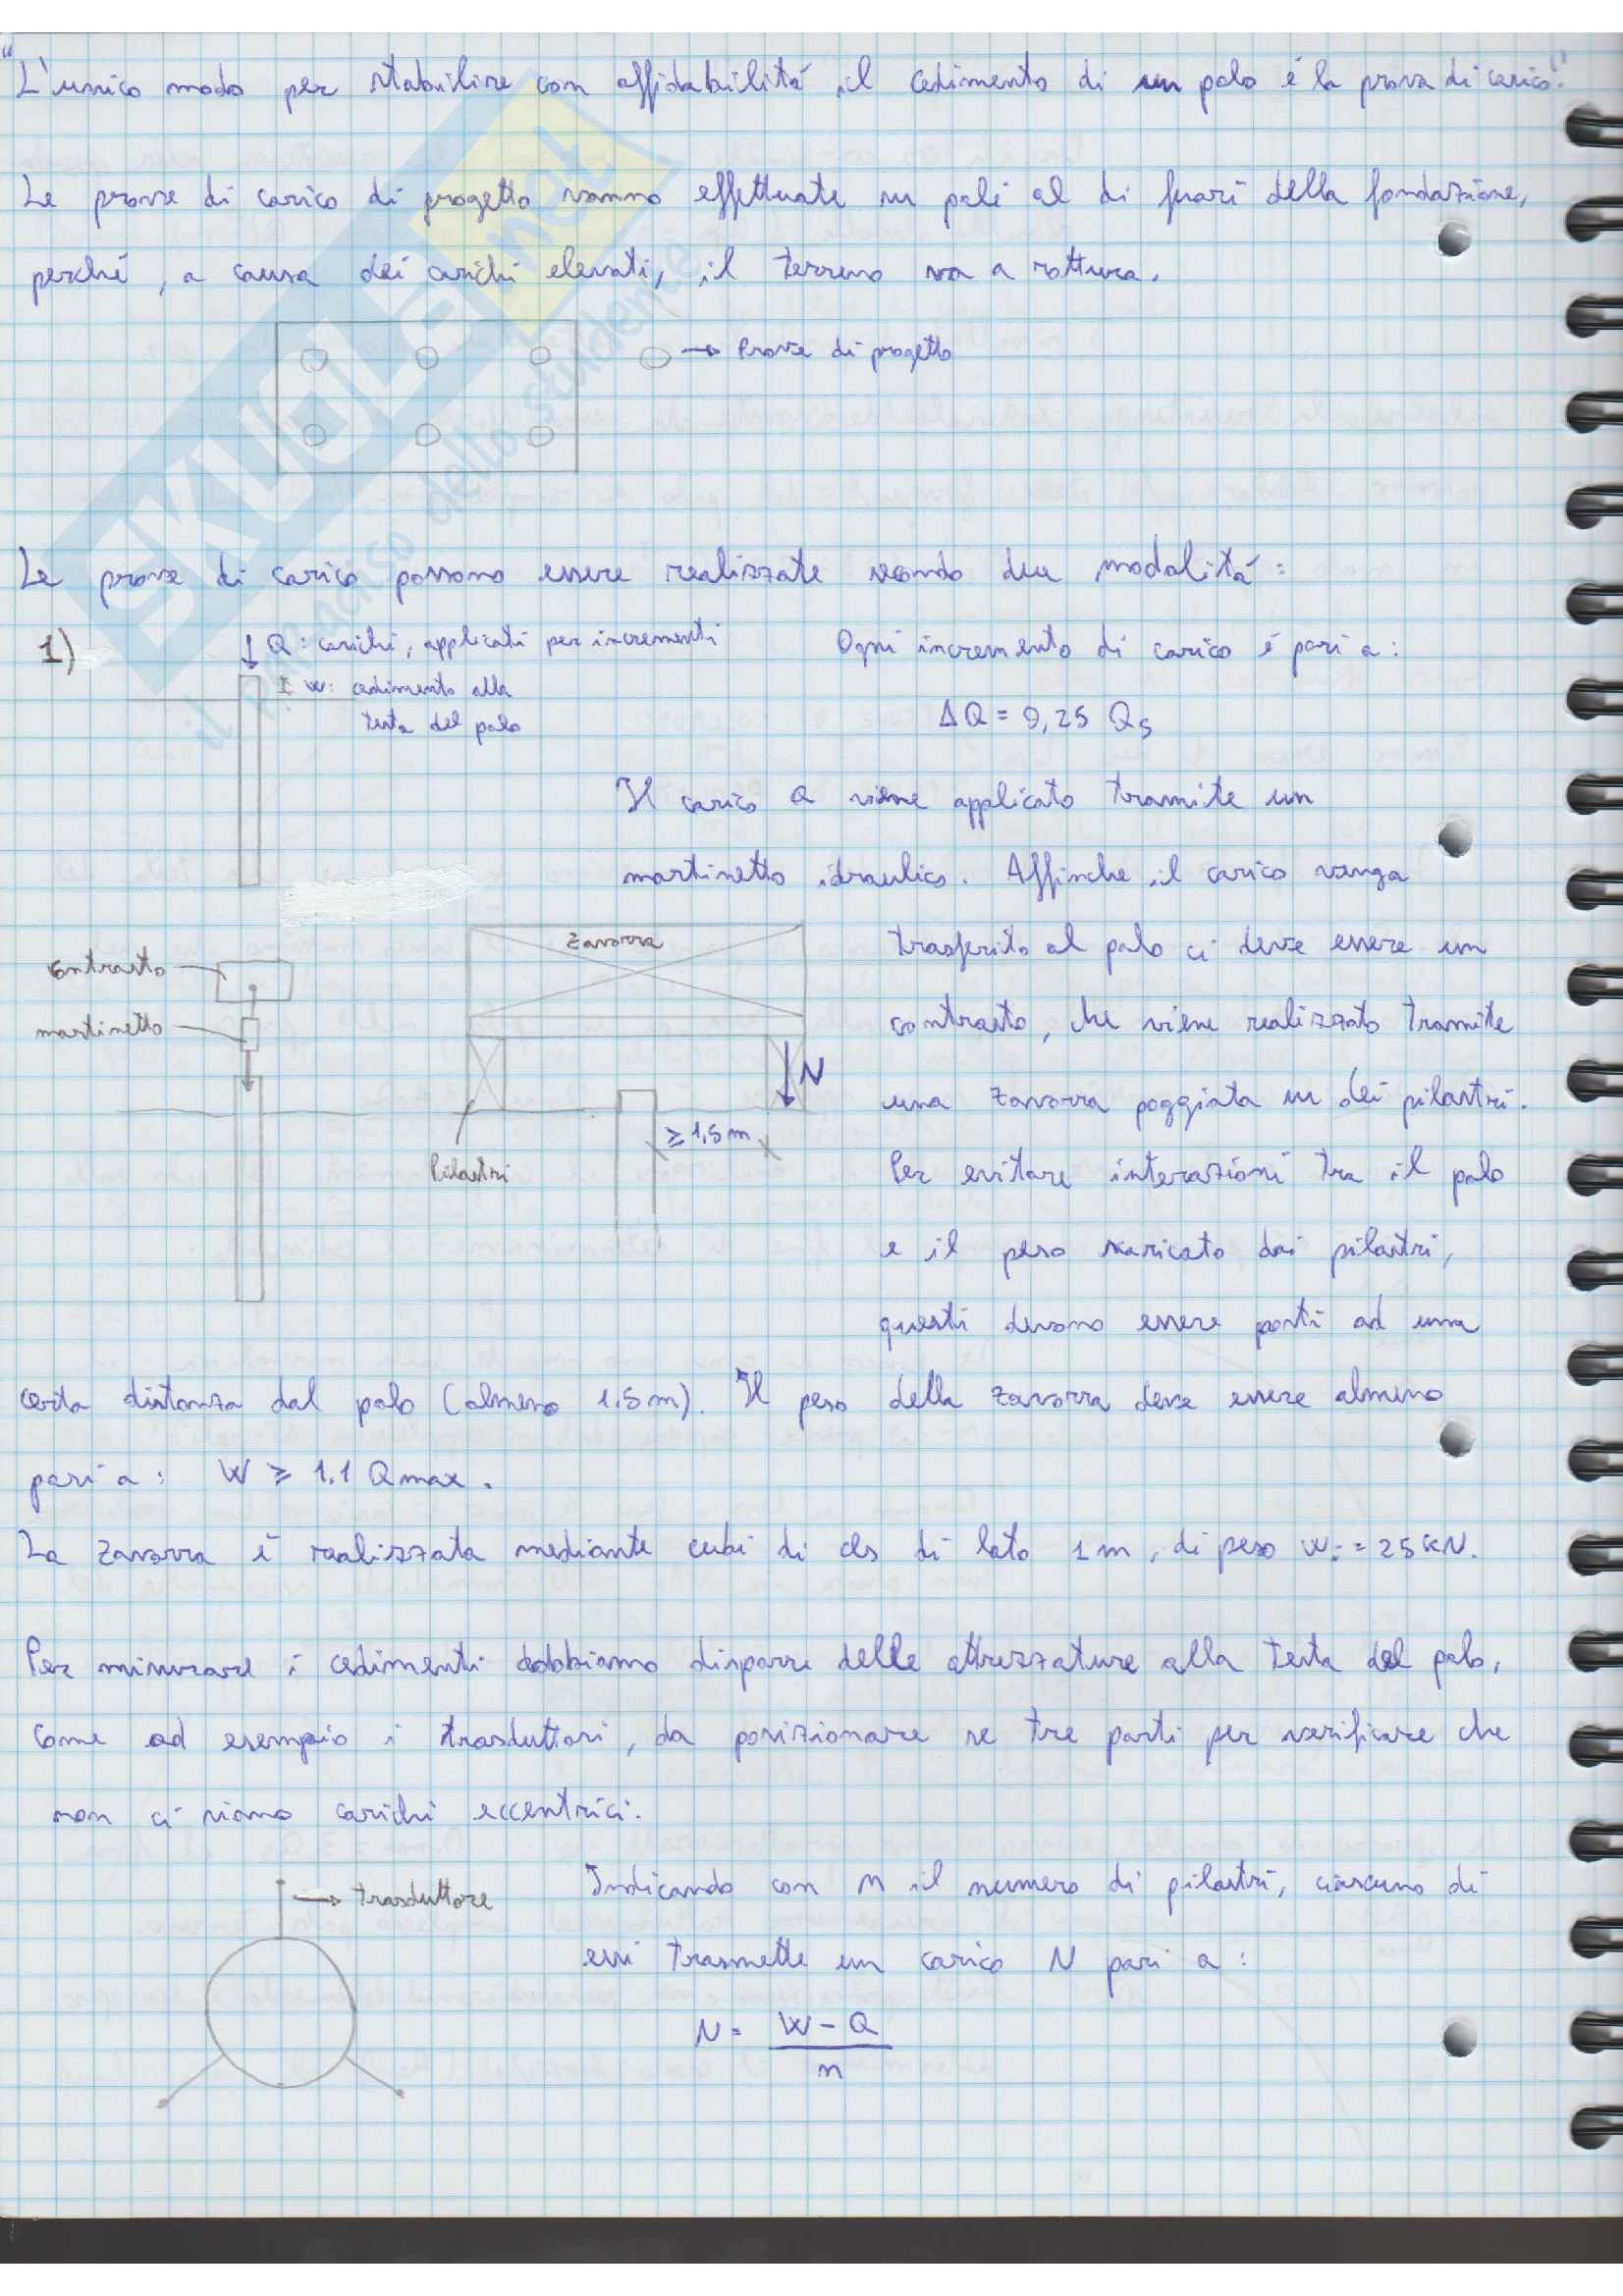 "L'unico modo per stabilire con affidabilitá il cedimento di un palo é la prova di carico."
Le prove di carico di progetto vanno effettuate su pali al di fuori della fondazione,
perché, a causa dei carichi elevati, il terreno va a rottura.
→ Prove di progetto
Le prove di carico possono essere realizzate secondo due modalitá:
1)
Q: carichi, applicati per incrementi
w: cedimento alla
testa del palo
Ogni incremento di carico é pari a:
ΔQ = 0,25 Qs
Il carico Q viene applicato tramite un
martinetto idraulico. Affinche il carico venga
trasferito al palo ci deve essere un
contrasto, che viene realizzato tramite
una zavorra poggiata su dei pilastri.
Per evitare interazioni tra il palo
e il peso scaricato dai pilastri,
questi devono essere posti ad una
contrasto
martinetto
zavorra
N
≥ 1,5 m
Pilastri
certa distanza dal palo (almeno 1,5 m). Il peso della zavorra deve essere almeno
pari a: W ≥ 1,1 Qmax.
La zavorra é realizzata mediante cubi di cls di lato 1 m, di peso Wi = 25 kN.
Per misurare i cedimenti dobbiamo disporre delle attrezzature alla testa del palo,
come ad esempio i trasduttori, da posizionare se tre parti per verificare che
non ci siano carichi eccentrici.
→ trasduttore
Indicando con n il numero di pilastri, ciascuno di
essi trasmette un carico N pari a:
N = W - Q / n
SKUOLA.net
il dello studente